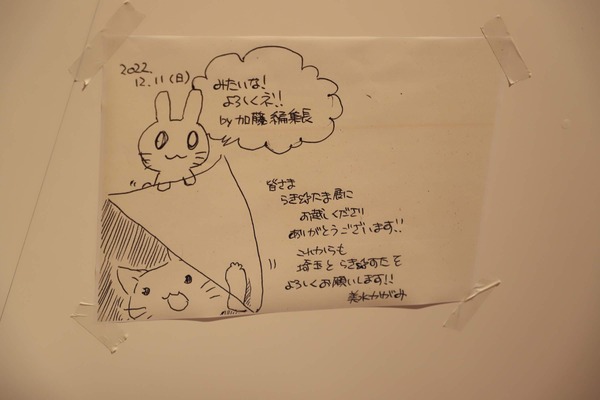 2022.
12.11(日)
みたいな!
よろしくネ!!
by加藤編集長
皆さま
らき☆たま展に
お越しくださり
ありがとうございます!!
これからも
埼玉と らき☆すたを
よろしくお願いします!!
美水かがみ